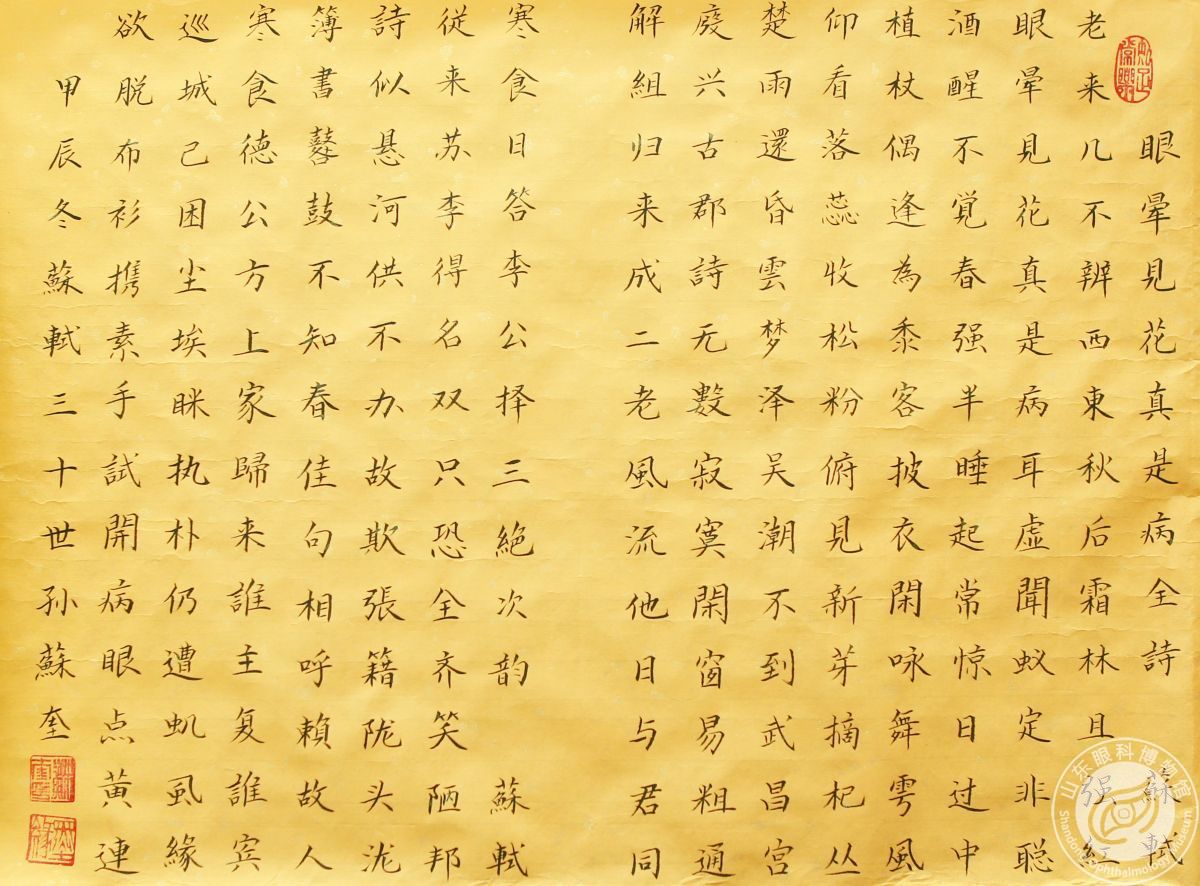 眼暈見花真是病全詩　蘇軾
老来几不辨西東秋后霜林且强红
眼暈見花真是病耳虚聞蚁定非聪
酒醒不觉春强半睡起常惊日过中
植杖偶逢為黍客披衣閑咏舞雩風
仰看落蕊收松粉俯見新芽摘杞丛
楚雨還昏雲梦泽吴潮不到武昌宫
廢兴古郡詩无數寂寞閑窗易粗通
解組归来成二老風流他日与君同
寒食日答李公择三絶次韵　蘇軾
従来苏李得名双只恐全齐笑陋邦
詩似悬河供不办故欺張籍陇头泷
簿書鼛鼓不知春佳句相呼賴故人
寒食德公方上家歸来誰主复誰宾
巡城己困尘埃眯执朴仍遭虮虱緣
欲脱布衫携素手試開病眼点黄連
甲辰冬蘇軾三十世孙蘇奎
山东眼科博物馆
Shandong Ophthalmology Museum